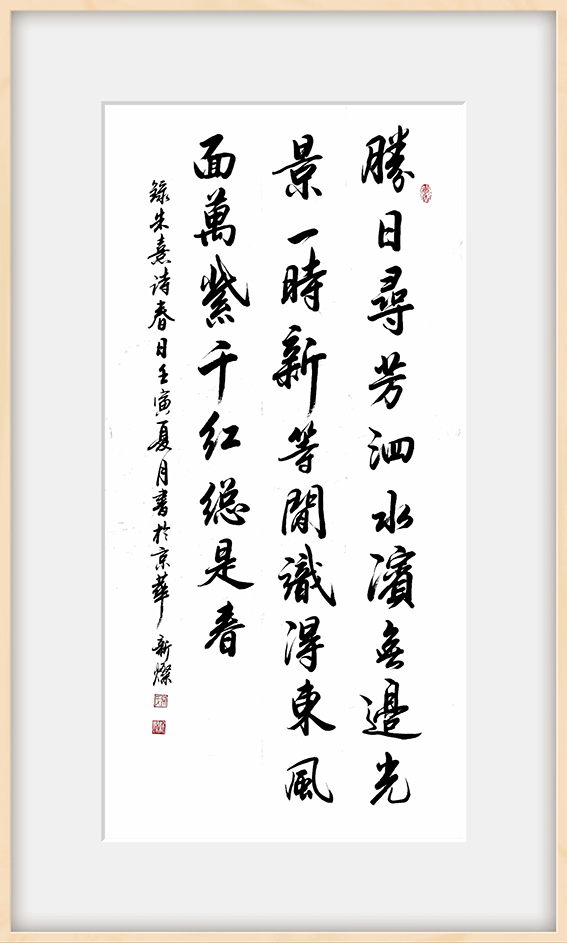 勝日尋芳泗水濱無邊光
景一時新等閒識得東風
面萬紫千红總是春
録朱熹诗春日壬寅夏月書於京華 新燦